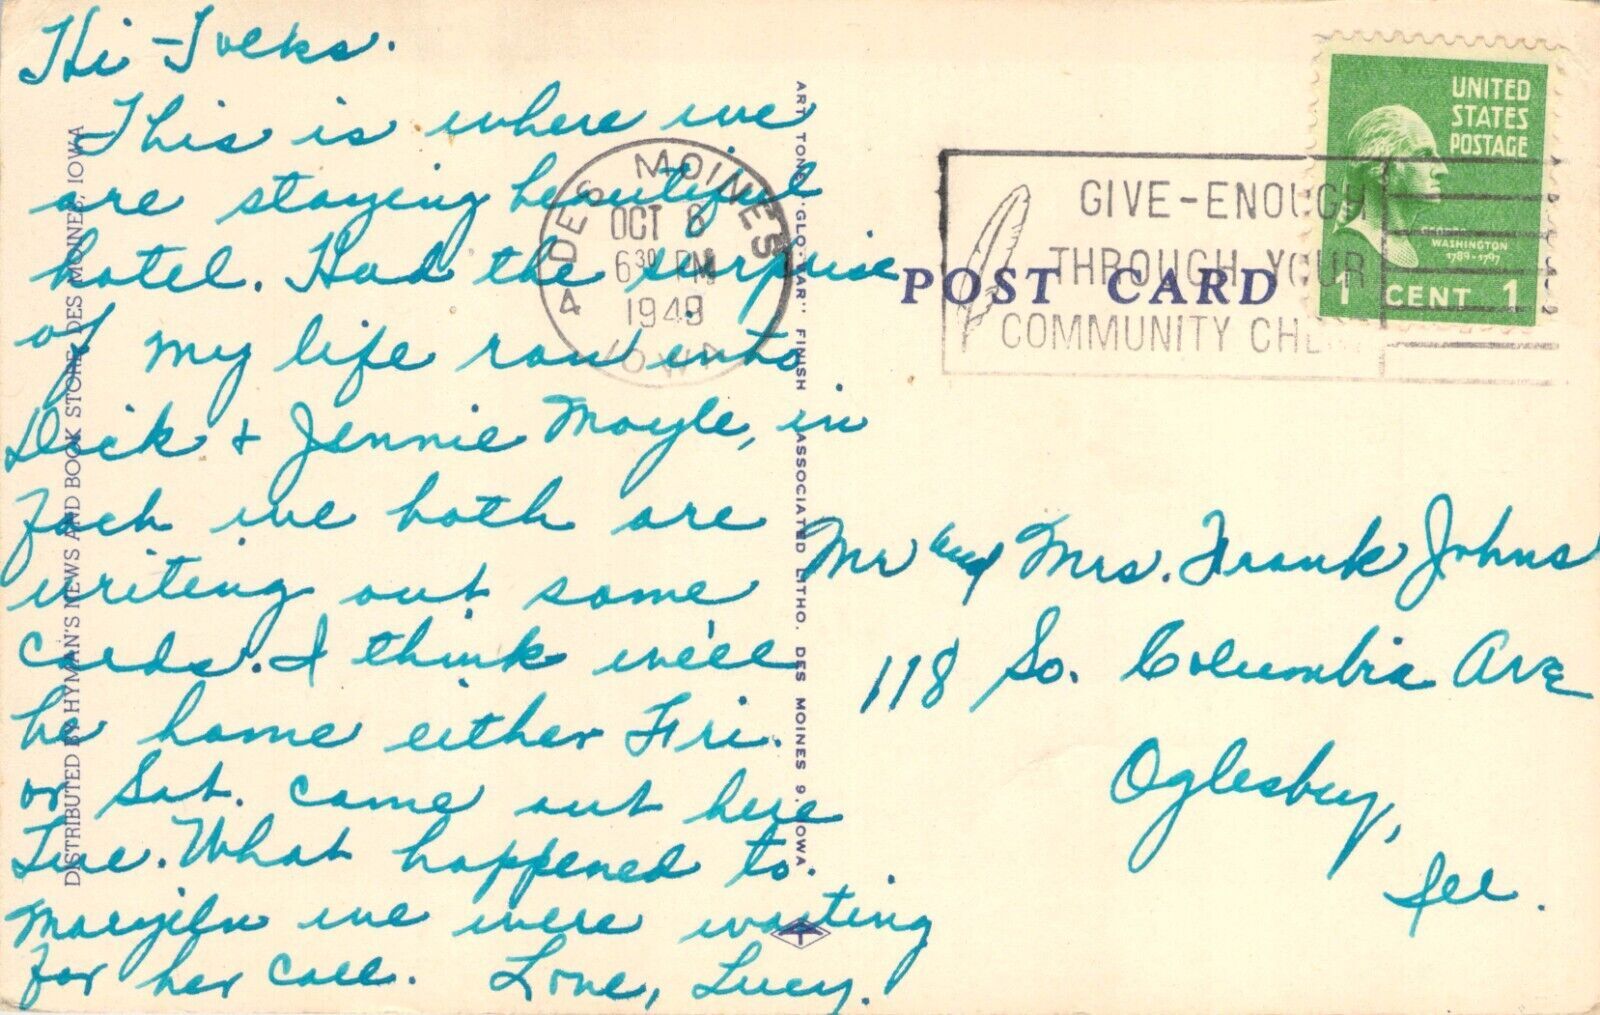 Hi-Folks.
This is where we
are staying beautiful
hotel. Had the surprise
of my life ran into
Dick & Jennie Moyle, in
fach we both are
writing out some
cards. I think we'll
be home either Fri.
or Sat. Came out here
Tue. What happened to
Marijeln we were waiting
for her call. Love, Lucy.
DISTRIBUTED BY HYMAN'S NEWS AND BOOK STORE, DES MOINES, IOWA
ART TONE "GLO-VAR" FINISH ASSOCIATED LITHO. DES MOINES 9, IOWA
DES MOINES
OCT 6
6 30 PM
1949
4 IOWA
GIVE-ENOUGH
THROUGH YOUR
COMMUNITY CHE
UNITED
STATES
POSTAGE
WASHINGTON
1789-1797
1 CENT 1
POST CARD
Mr and Mrs. Frank Johns
118 So. Columbia Ave
Oglesby,
Ill.